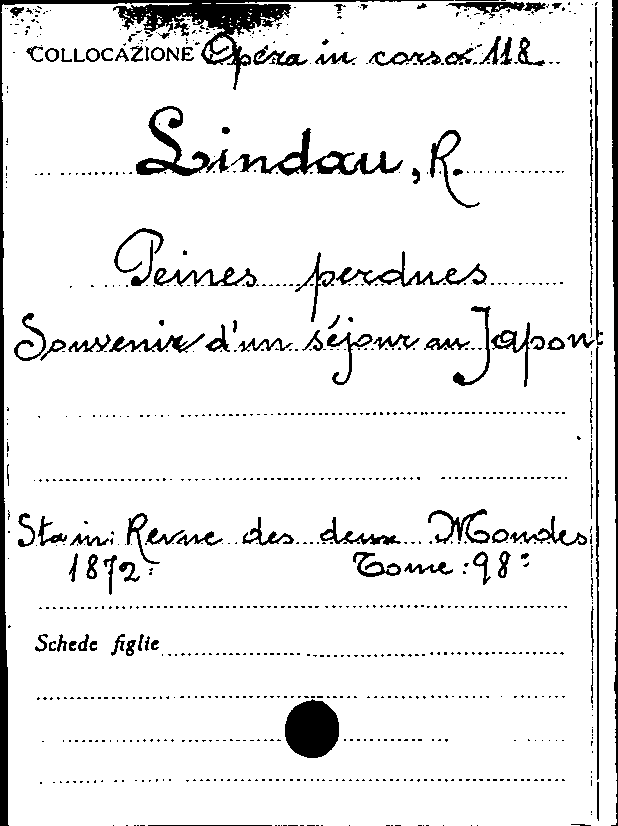 COLLOCAZIONE Opera in corso 118
Lindau, R.
Peines perdues
Souvenir d'un séjour au Japon:
Sta in: Revue des deux Mondes
1872: Tome: 98:
Schede figlie